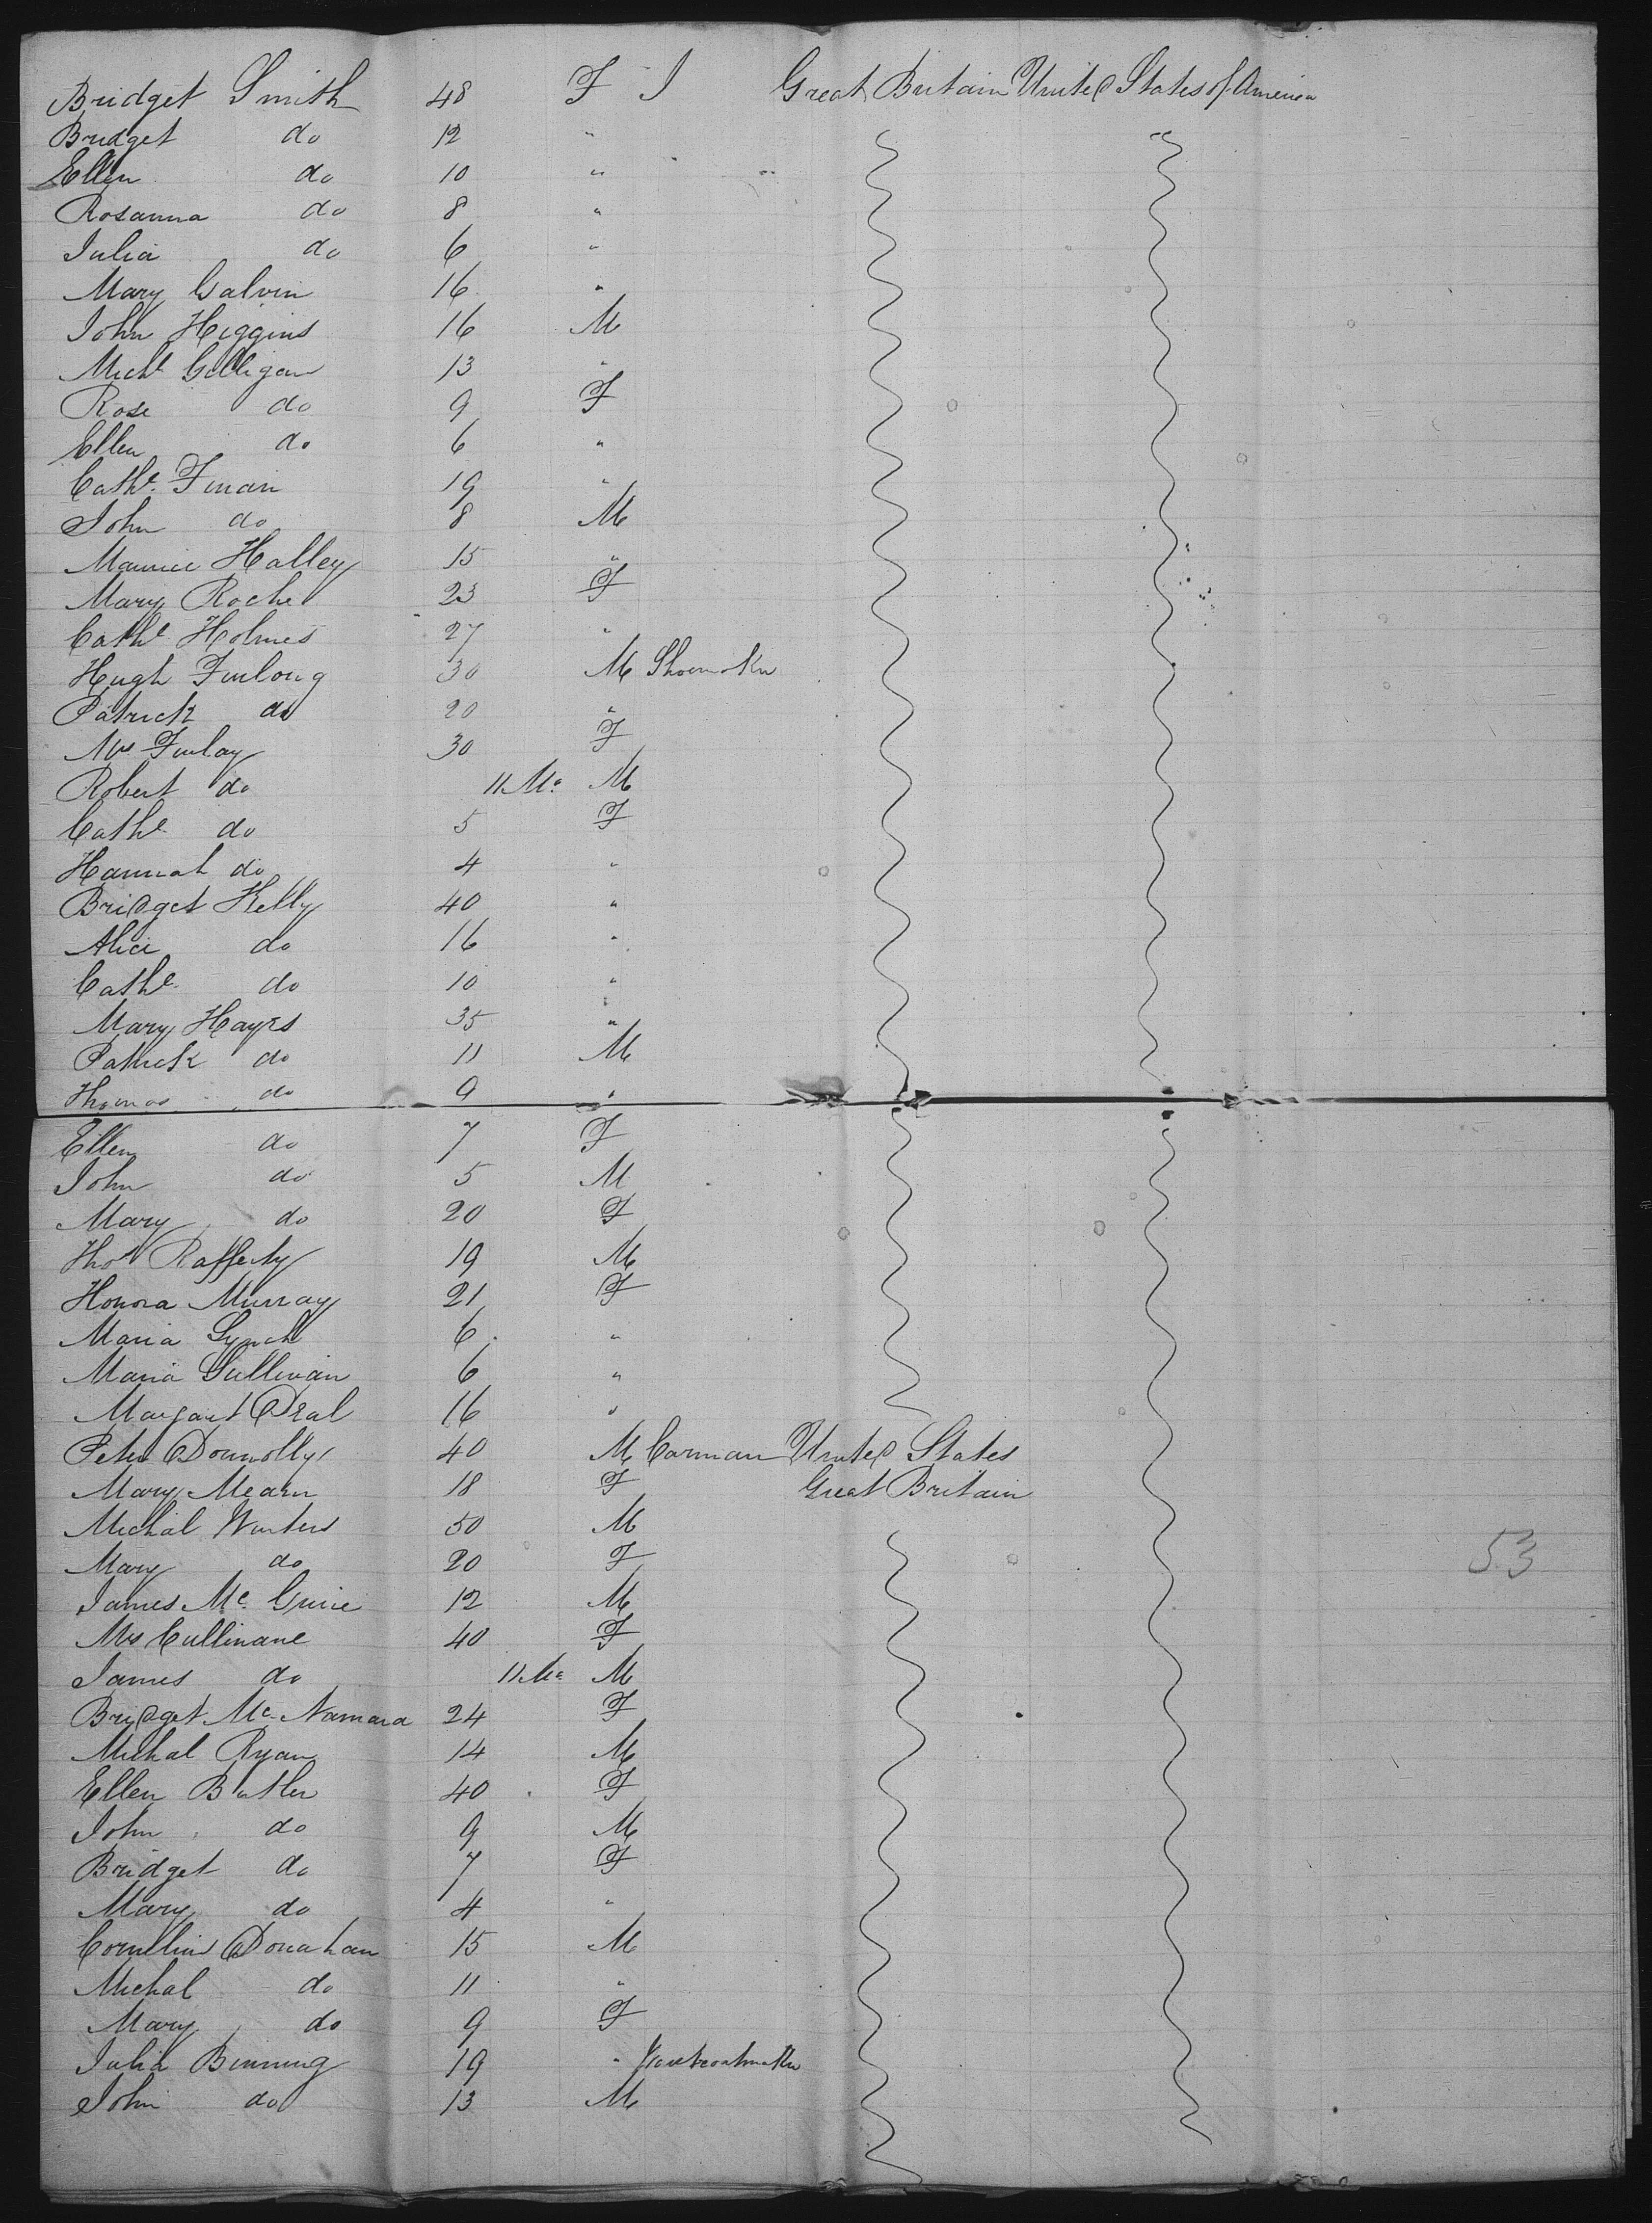 Bridget Smith 48 F Great Britain United States of America
Bridget do 12 "
Ellen do 10 "
Rosanna do 8 "
Julia do 6 "
Mary Galvin 16 "
John Higgins 16 M
Michl Gilligan 13 "
Rose do 9 F
Ellen do 6 "
Cathe Finan 19 "
John do 8 M
Maurice Halley 15 "
Mary Roche 23 F
Cathe Holmes 27 "
Hugh Furlong 30 M Shoemaker
Patrick do 20 "
Mrs Finlay 30 F
Robert do 11 Mo M
Cathe do 5 F
Hannah do 4 "
Bridget Kelly 40 "
Alice do 16 "
Cathe do 10 "
Mary Hayes 35 "
Patrick do 11 M
Thomas do 9 "
Ellen do 7 F
John do 5 M
Mary do 20 F
Thos Rafferty 19 M
Honora Murray 21 F
Maria Lynch 6 "
Maria Sullivan 6 "
Margaret 16 "
Peter Donnolly 40 M Carman United States
Mary Mearn 18 F Great Britain
Michal Winters 50 M
Mary do 20 F
James Mc Guire 12 M
Mrs Cullinane 40 F
James do 11 Mo M
Bridget Mc Namara 24 F
Michal Ryan 14 M
Ellen Butler 40 F
John do 9 M
Bridget do 7 F
Mary do 4 "
Cornelius Donahan 15 M
Michal do 11 "
Mary do 9 F
Julia Binning 19 "
John do 13 M
53